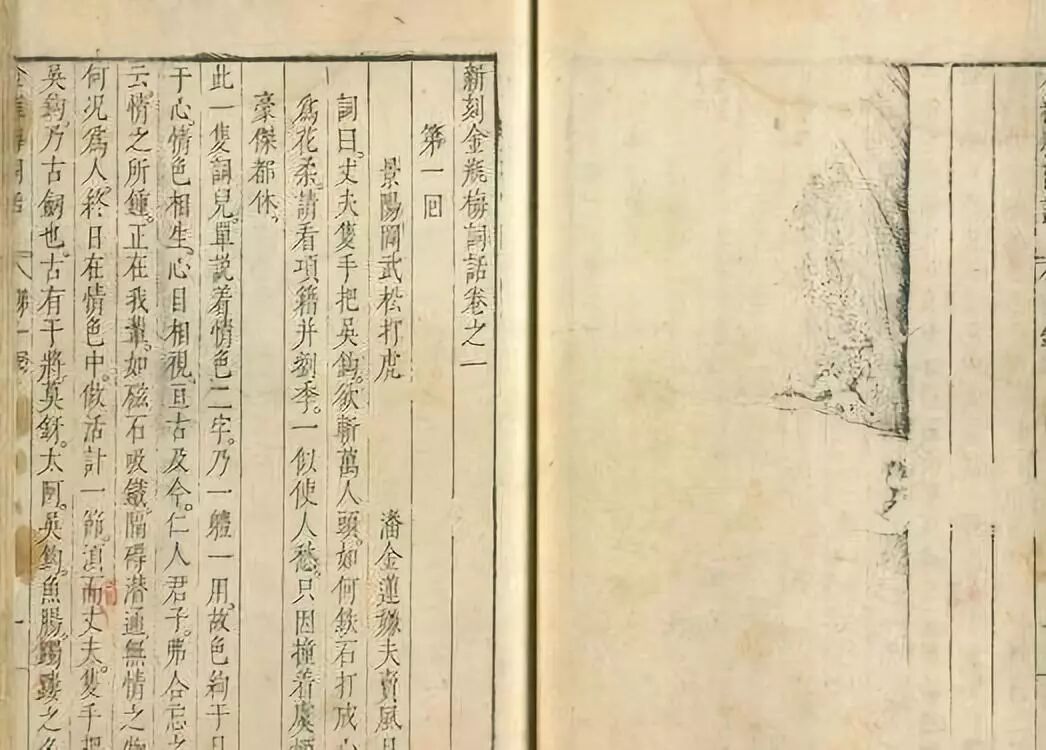 新刻金瓶梅詞話卷之一
第一回
景陽岡武松打虎　潘金蓮嫌夫賣風月
詞曰。丈夫隻手把吳鈎。欲斬萬人頭。如何鉄石打成心
爲花柔。請看項籍并劉季。一似使人愁。只因撞着虞姬
豪傑都休。
此一隻詞兒。單説着情色二字。乃一體一用。故色絢于目
于心。情色相生。心目相視。亘古及今。仁人君子。弗合忘之
云。情之所鍾。正在我輩。如磁石吸鐵。隔碍潜通。無情之物
何况爲人。終日在情色中。做活計一節。須而丈夫。隻手把
吳鈎。乃古劔也。古有干將。莫釾。太阿。吳鈎。魚腸。躅鏤之名